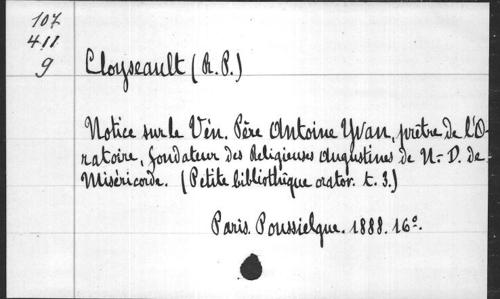 107
411
g
Cloyseault (R. P.)
Notice sur le Vén. Père Antoine Yvan, prêtre de l'O-
ratoire, fondateur des Religieuses Augustines de N.-D. de
Miséricorde. (Petite bibliothèque orator. t. 3.)
Paris. Poussielgue. 1888. 16°.